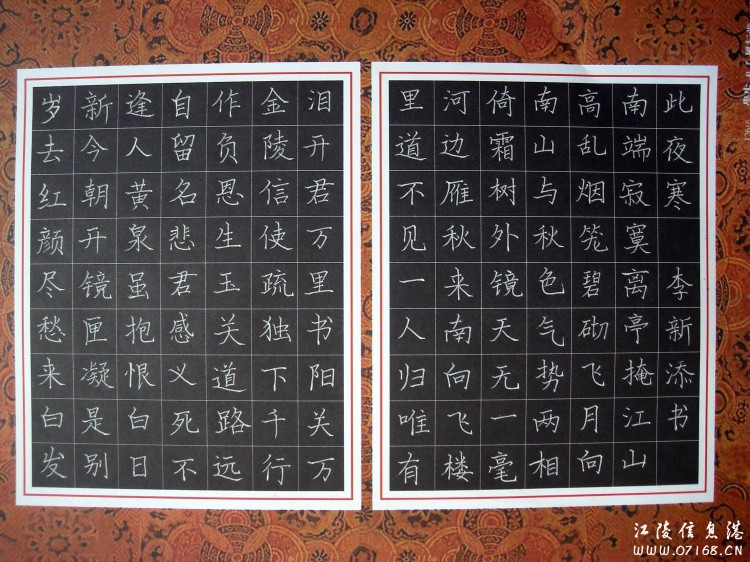 岁去红颜尽愁来白发
新今朝开镜匣凝是别
逢人黄泉虽抱恨白日
自留名悲君感义死不
作负恩生玉关道路远
金陵信使疏独下千行
泪开君万里书阳关万
里道不见一人归唯有
河边雁秋来南向飞楼
倚霜树外镜天无一毫
南山与秋色气势两相
高乱烟笼碧砌飞月向
南端寂寞离亭掩江山
此夜寒 李新添书
江陵信息港
WWW.07168.CN